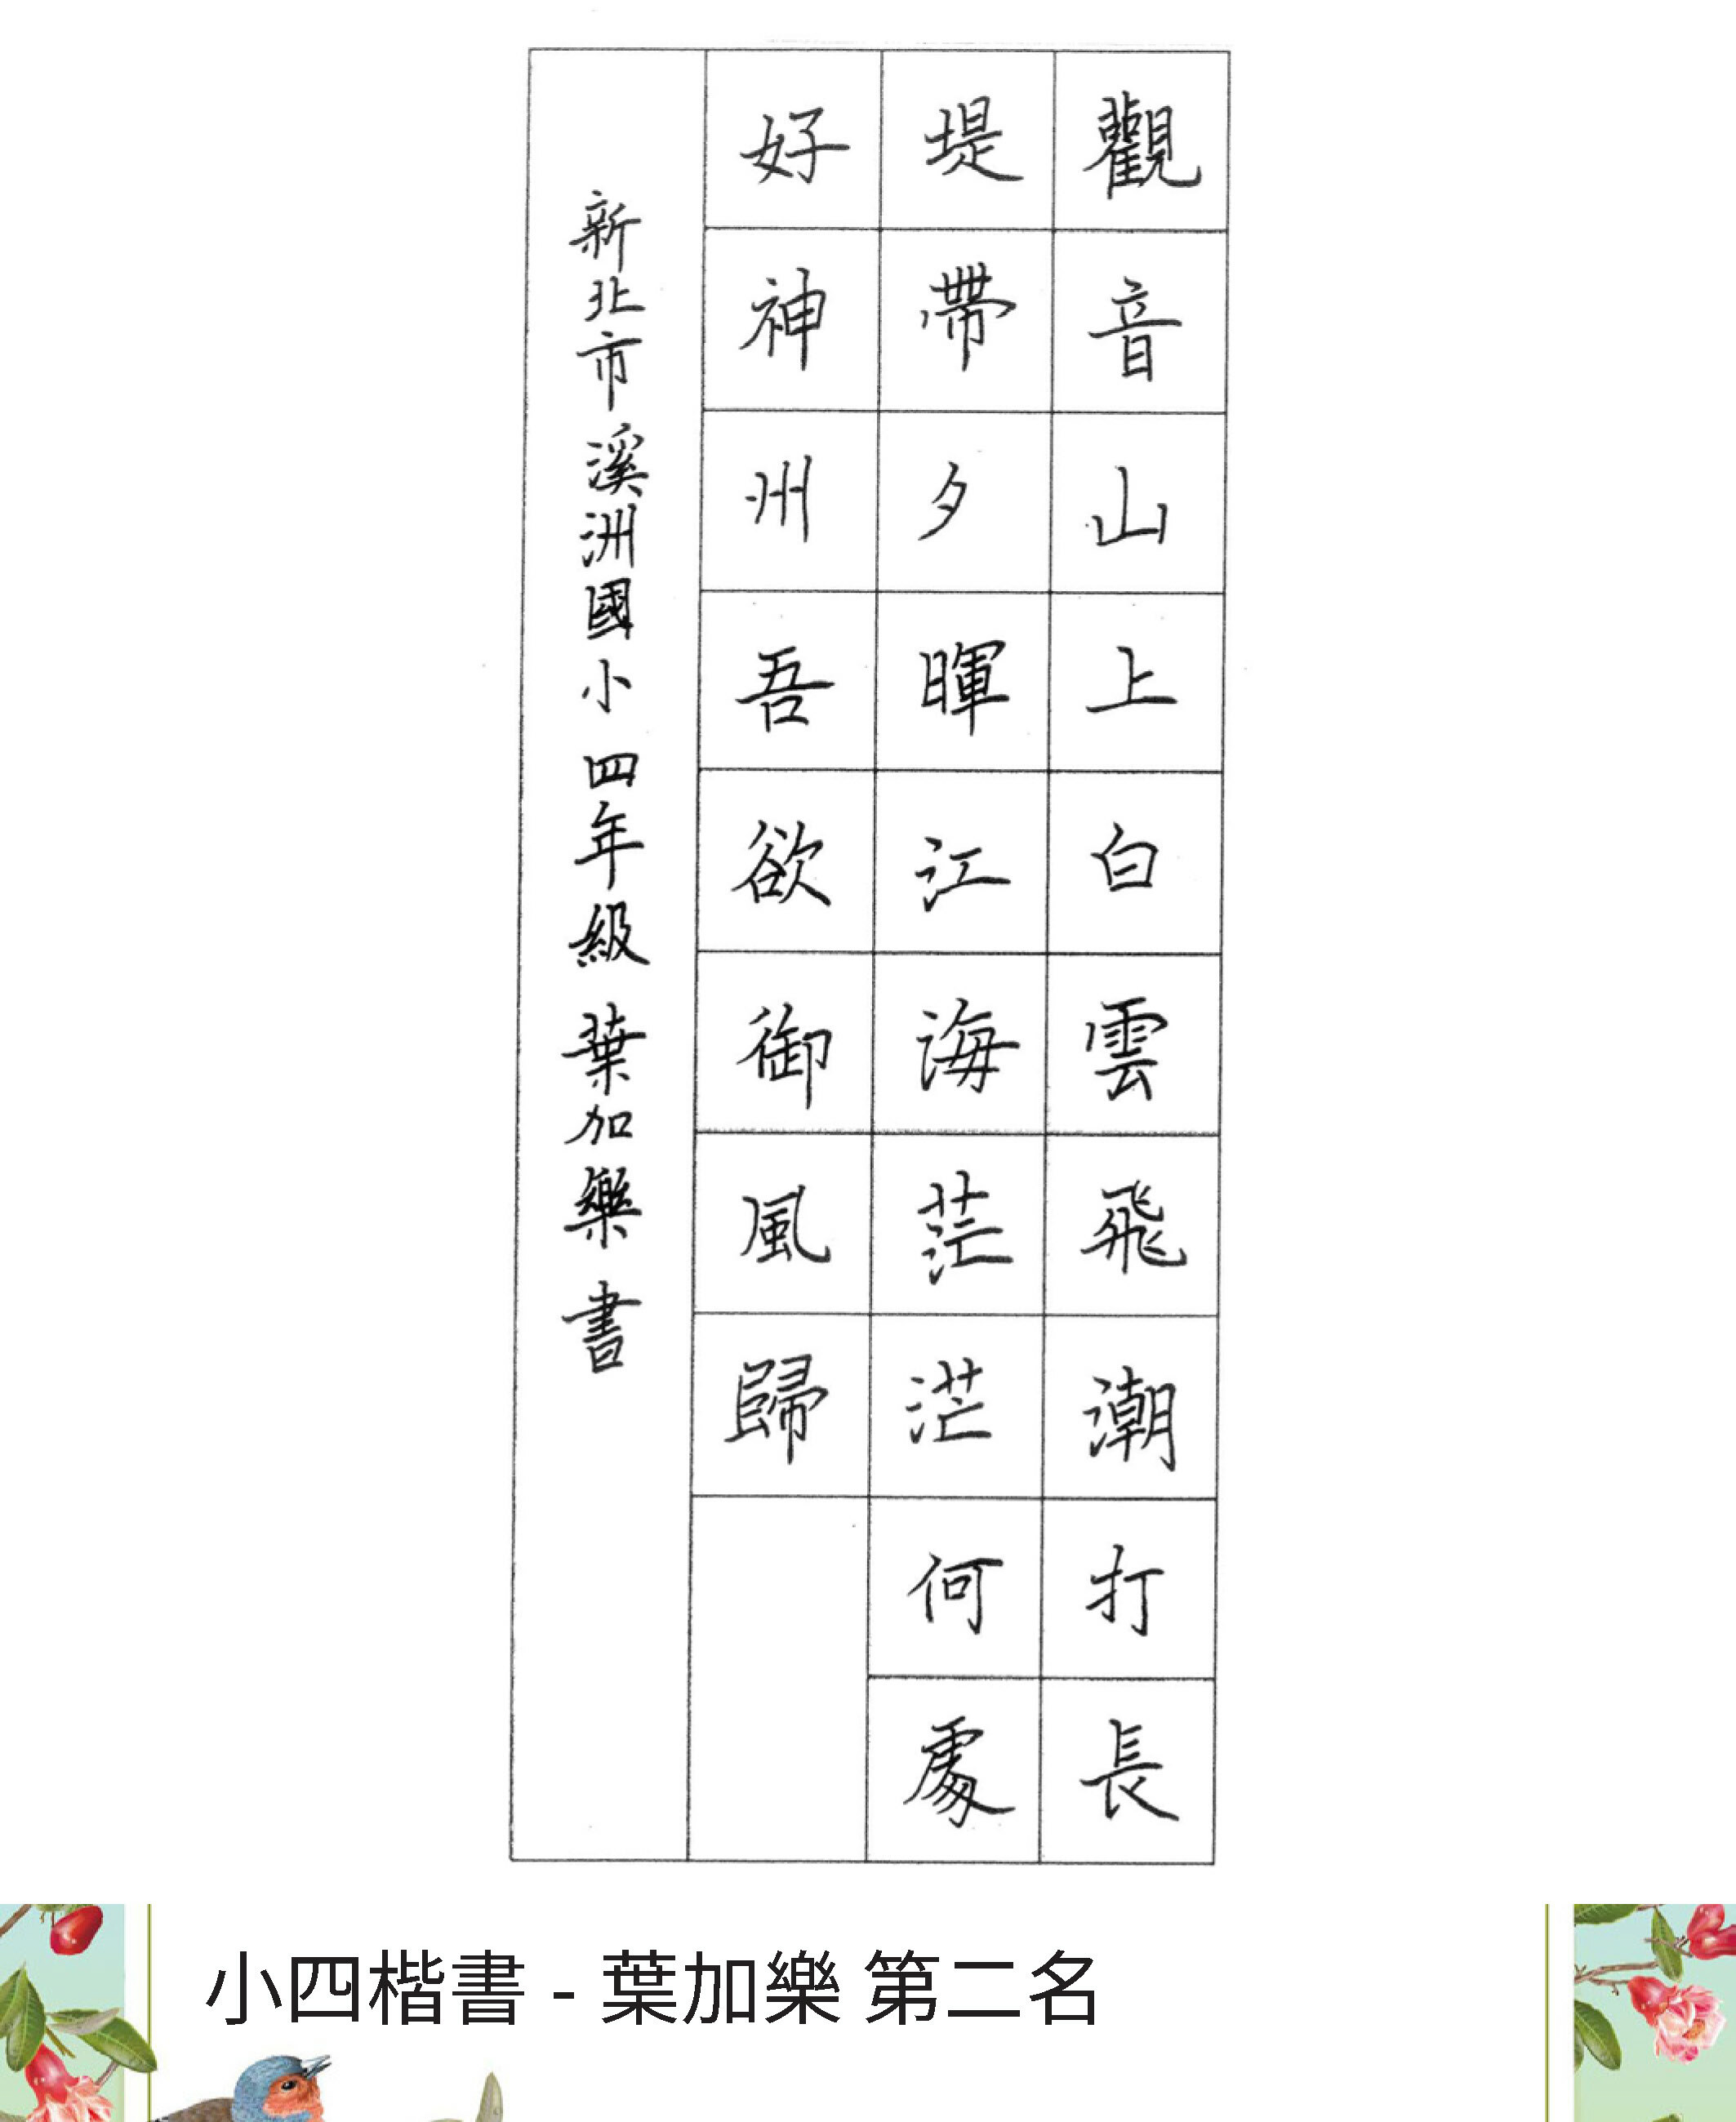 觀音山上白雲飛潮打長
堤帶夕暉江海茫茫何處
好神州吾欲御風歸
新北市溪洲國小 四年級 葉加樂 書
小四楷書 - 葉加樂 第二名